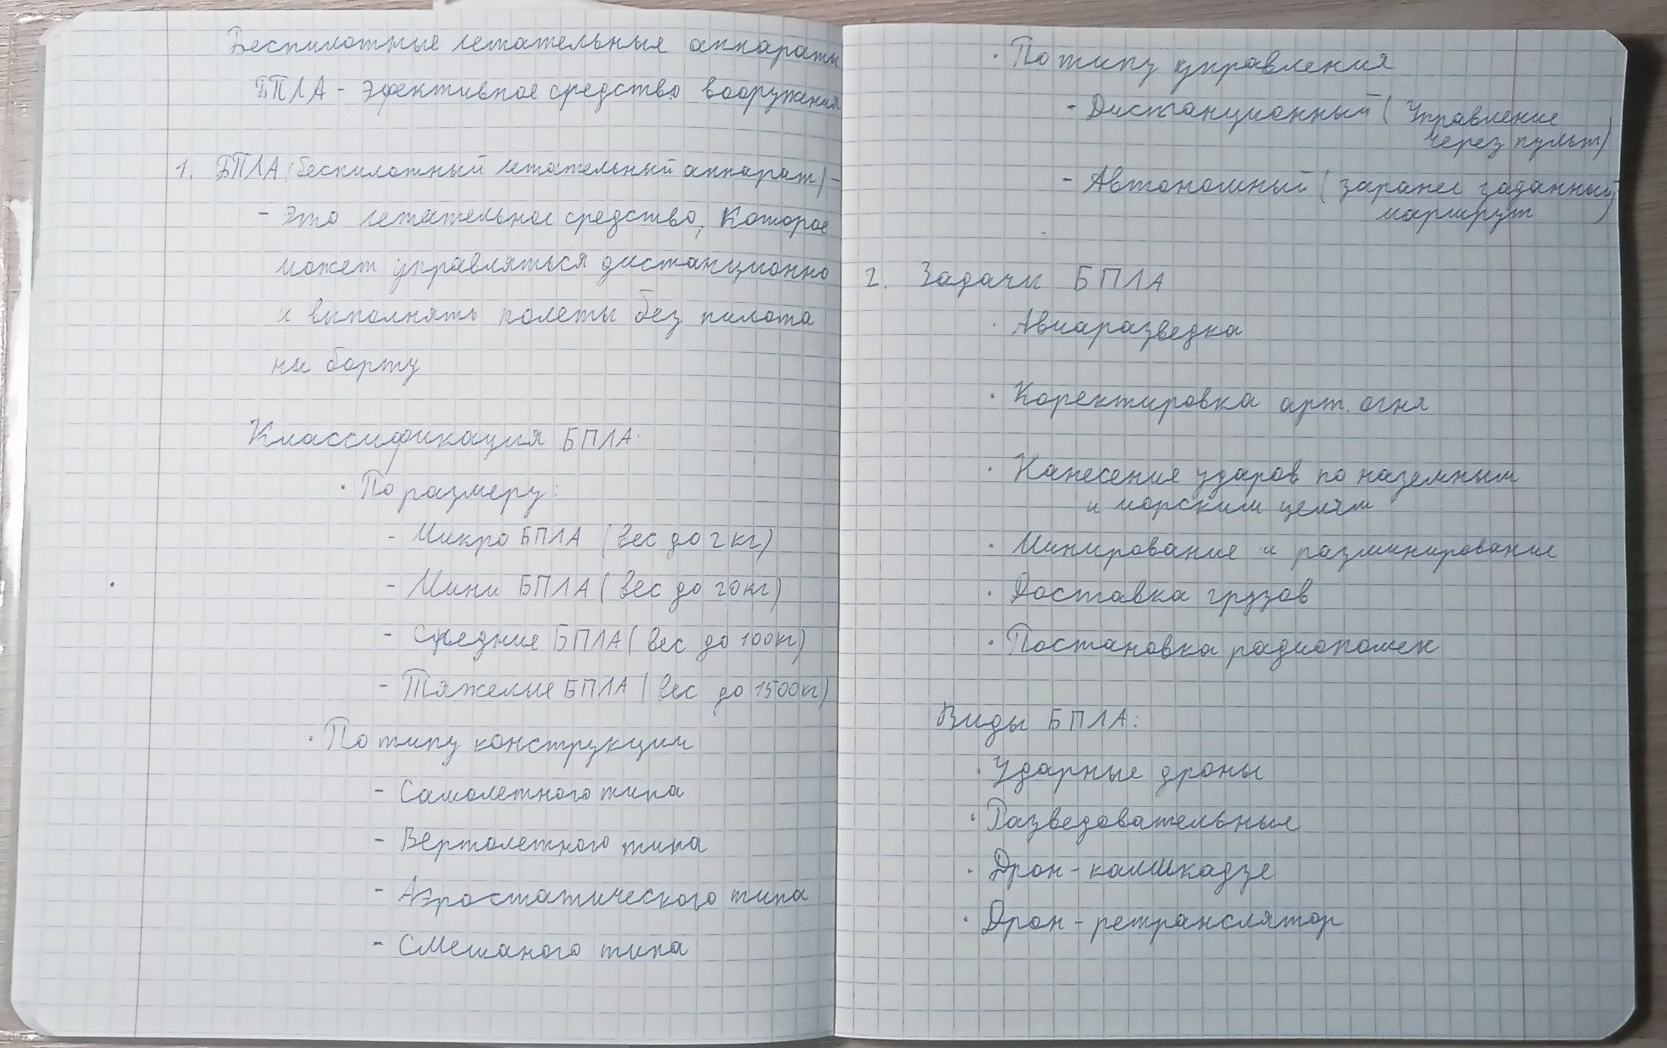 Беспилотные летательные аппараты
БПЛА - Эфективное средство вооружения
1. БПЛА (беспилотный летательный аппарат) -
- Это летательное средство, которое
может управляться дистанционно
и выполнять полеты без пилота
на борту
Классификация БПЛА:
· По размеру:
- Микро БПЛА (вес до 2 кг)
- Мини БПЛА (вес до 20 кг)
- Средние БПЛА (вес до 100 кг)
- Тяжелые БПЛА (вес до 1500 кг)
· По типу конструкции
- Самолетного типа
- Вертолетного типа
- Аэростатического типа
- Смешаного типа
· По типу управления
- Дистанционный (Управление
через пульт)
- Автономный (заранее заданный
маршрут)
2. Задачи БПЛА
· Авиаразведка
· Коректировка арт. огня
· Нанесение ударов по наземным
и морским целям
· Минирование и разминирование
· Доставка грузов
· Постановка радиопомех
Виды БПЛА:
· Ударные дроны
· Разведовательные
· Дрон-камикадзе
· Дрон-ретранслятор